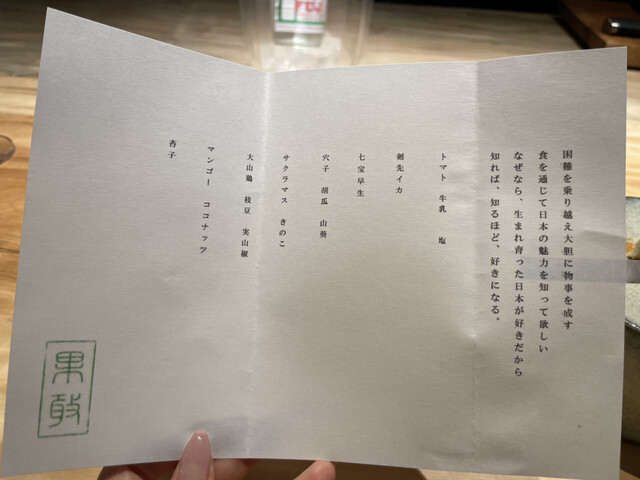 困難を乗り越え大胆に物事を成す
食を通じて日本の魅力を知って欲しい
なぜなら、生まれ育った日本が好きだから
知れば、知るほど、好きになる。
トマト 牛乳 塩
剣先イカ
七宝早生
穴子 胡瓜 山葵
サクラマス きのこ
大山鶏 枝豆 実山椒
マンゴー ココナッツ
杏子
果敢